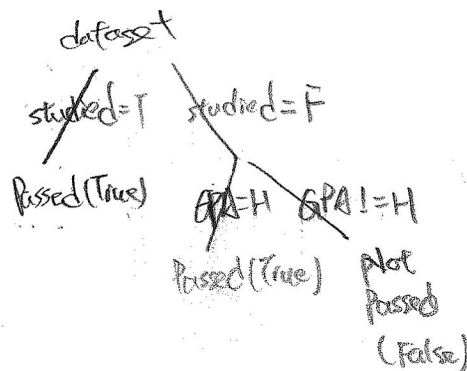 dataset
studied=T studied=F
Passed(True) GPA=H GPA!=H
Passed(True) Not
Passed
(False)